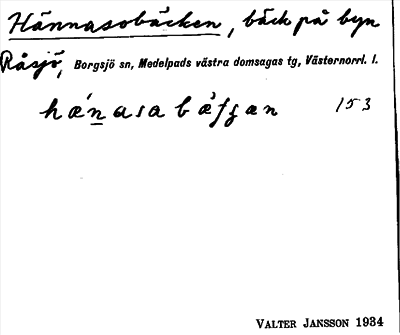 Hännasobäcken, bäck på byn
Råsjö, Borgsjö sn, Medelpads västra domsagas tg, Västernorrl. l.
hǽnasa bǽfʒæn 153
VALTER JANSSON 1934